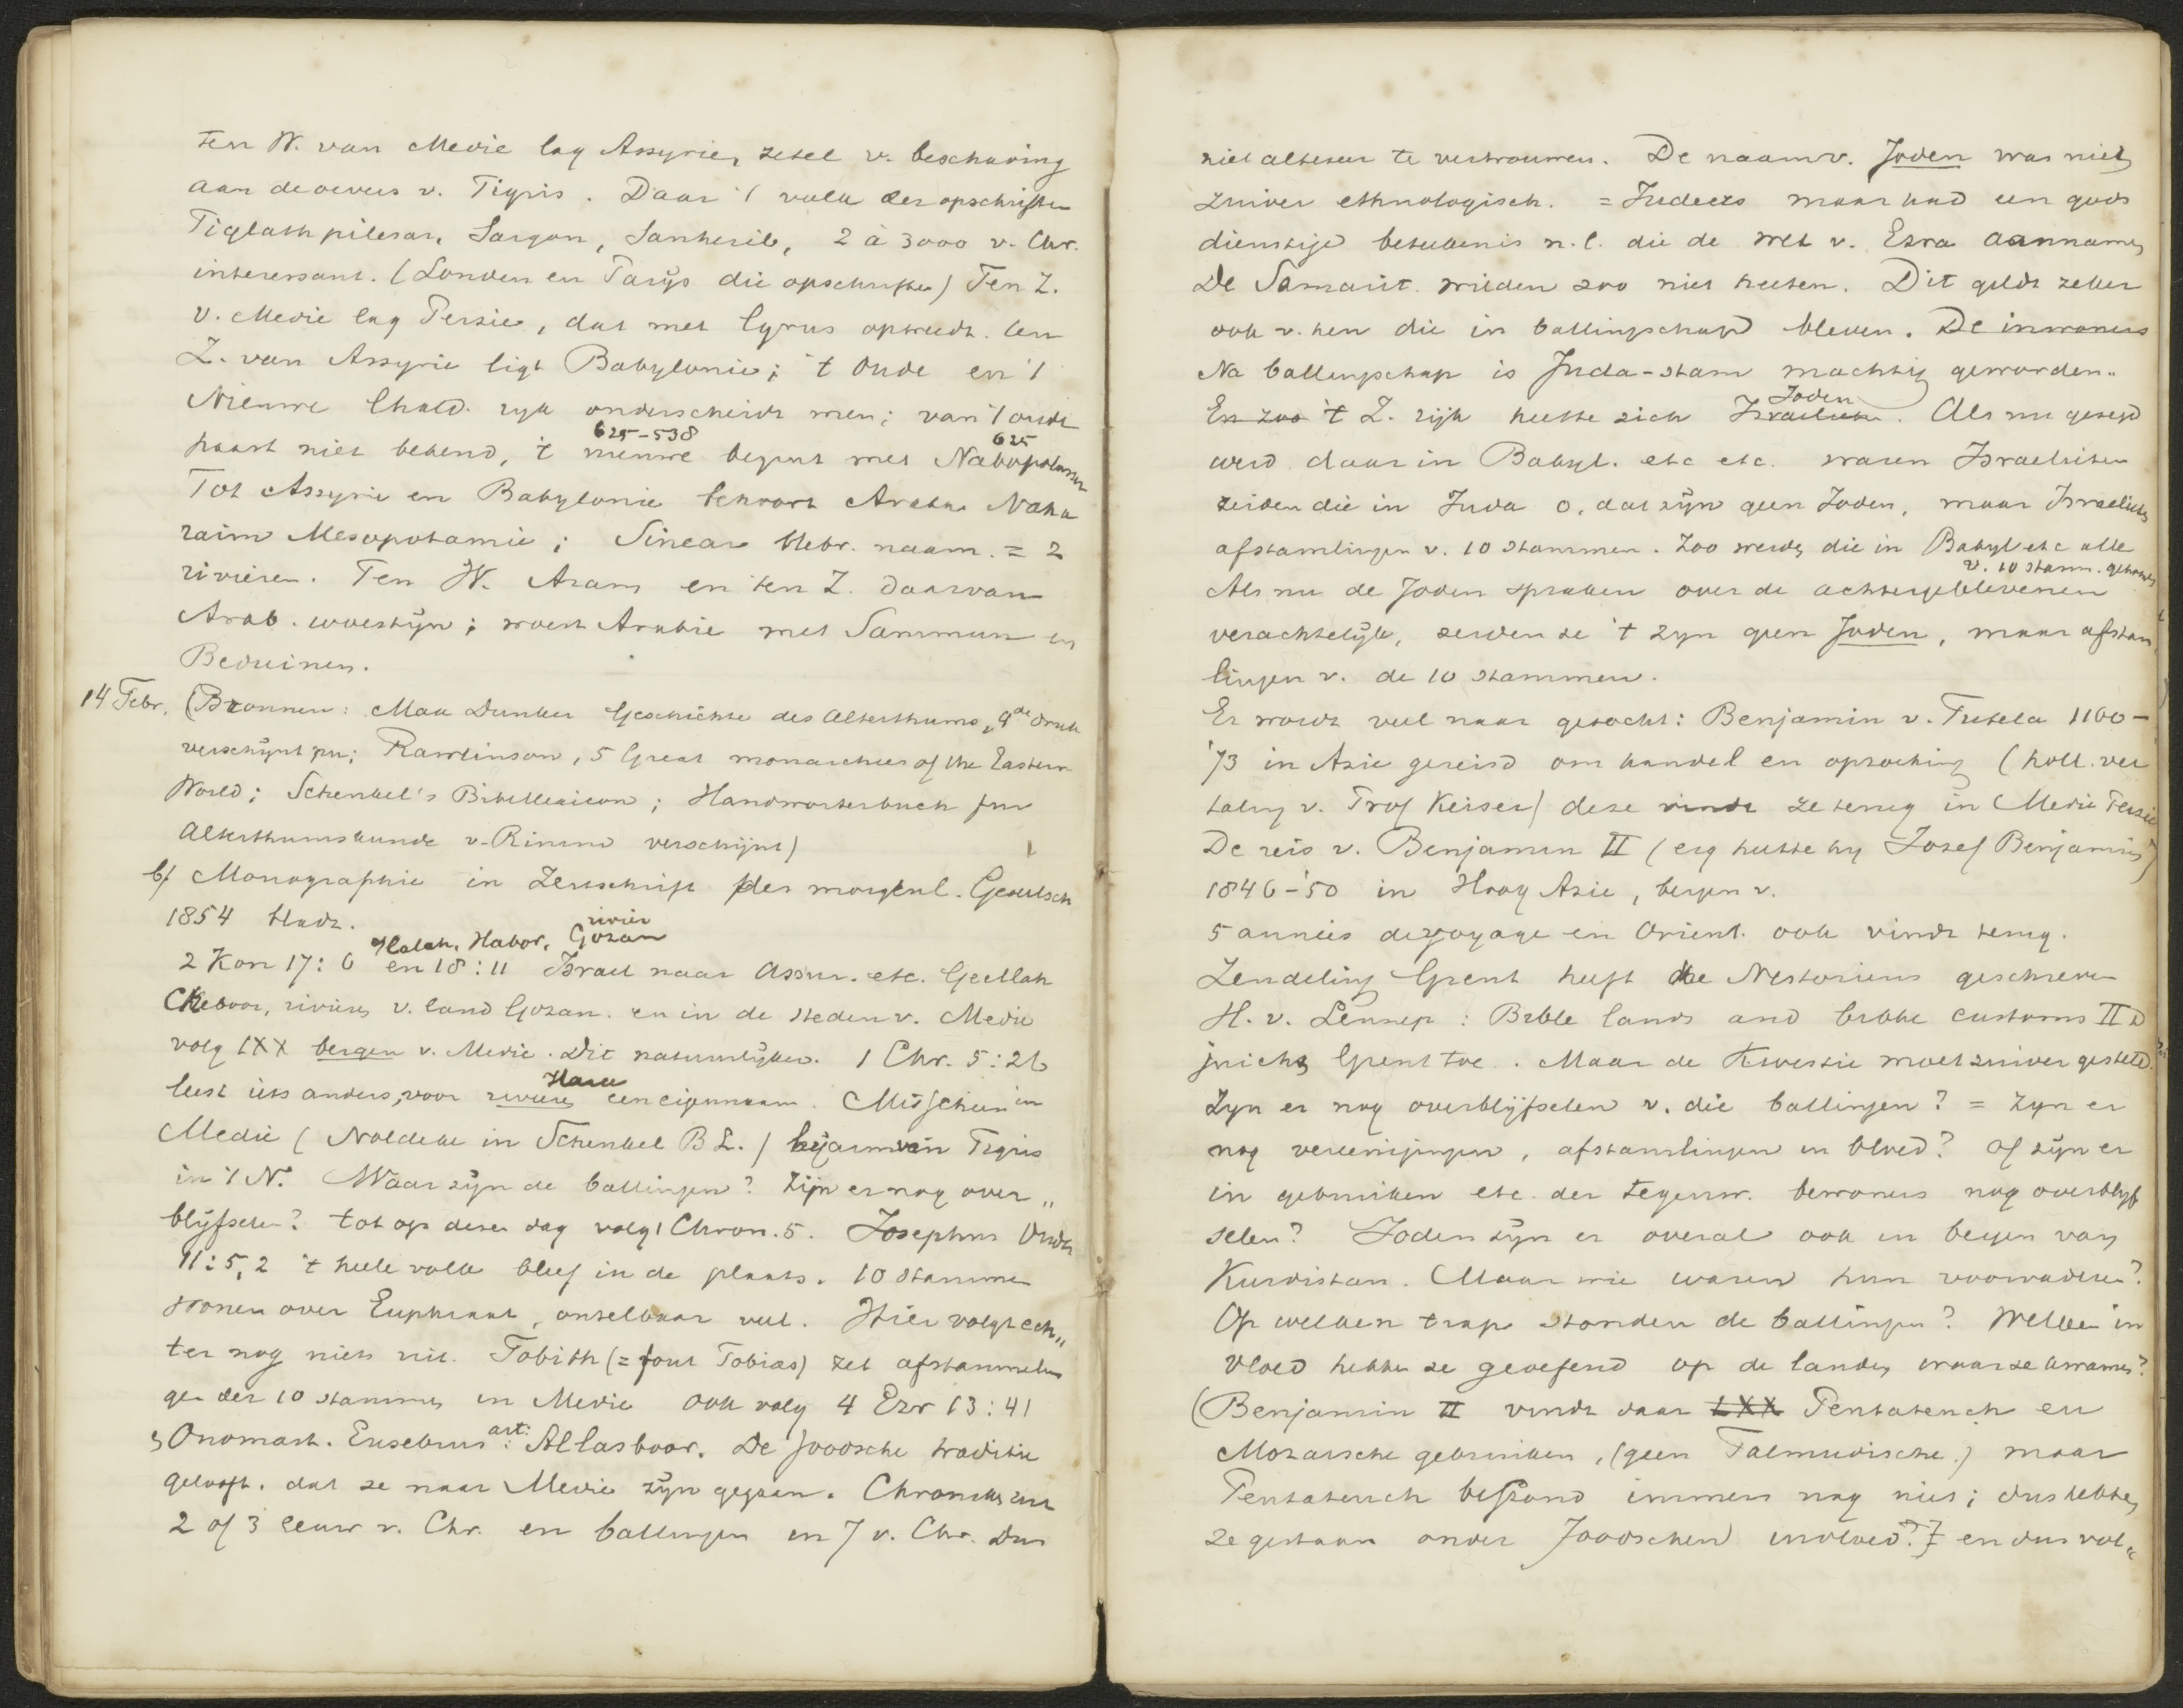 ten W. van Medie lag Assyrie, zetel v. beschaving
aan de oevers v. Tigris. Daar 't volk der opschriften
Tiglath pilesar, Sargon, Sanherib, 2 à 3000 v. Chr.
interessant. (Londen en Parijs die opschriften) Ten Z.
v. Medie lag Perzie, dat met Cyrus optreedt. ten
Z. van Assyrie ligt Babylonie; 't Oude en 't
Nieuwe Chald. ryk onderscheidt men; van 't oude
625-538 625
haast niet bekend, 't nieuwe begint met Nabopolassar
Tot Assyrie en Babylonie behoort Aram Naha
raim Mesopotamie; Sinear Hebr. naam. = 2
rivieren. Ten W. Aram en ten Z. daarvan
Arab. woestijn; woest Arabie met Sammum en
Beduinen.
14 Febr. (Bronnen: Max Dunker Geschichte des Alterthums, 4de druk
verschijnt nu; Rawlinson, 5 Great monarchies of the Eastern
World; Schenkel's Bibellexicon; Handworterbuch fur
Alterthumskunde v. verschijnt)
b/ Monographie in Zeitschrift der morgenl. Gesellsch
1854 bladz.
rivier
Halah, Habor, Gozan
2 Kon 17:6 en 18:11 Israel naar Assur. etc. Gellah
Chaboor, rivieren v. land Gozan. en in de steden v. Medie
volg LXX bergen v. Medie. Dit natuurlijker. 1 Chr. 5:26
Hara
leest iets anders, voor rivieren een eigennaam. Misschien in
Medie (Noldeke in Schenkel BL.) bijarm van Tigris
in 't N. Waar zijn de ballingen? Zijn er nog over„
blijfselen? tot op dezen dag volg 1 Chron. 5. Josephus Oudh
11:5,2 't heele volk bleef in de plaats. 10 stammen
wonen over Euphraat, ontelbaar veel. Hier volgt ech„
ter nog niets uit. Tobith (= fout Tobias) zet afstammelin
gen der 10 stammen in Medie ook volg 4 Ezr 13:41
art:
Onomast. Eusebius: Allasboor. De Joodsche traditie
gelooft, dat ze naar Medie zijn gegaan. Chronikus uit
2 of 3 eeuw v. Chr. en ballingen in 7 v. Chr. Dus
niet alteseer te vertrouwen. De naam v. Joden was niet
zuiver ethnologisch. = Judeers maar had een gods
dienstige beteekenis n.l. die de wet v. Ezra aannamen
De Samarit. wilden zoo niet heeten. Dit geldt zeker
ook v. hen die in ballingschap bleven. De inwoners
Na ballingschap is Juda-stam machtig geworden.
Joden
En zoo 't Z. rijk heette zich Israelieten. Als nu gezegd
werd daar in Babyl. etc etc. waren Israelieten
zeiden die in Juda o, dat zijn geen Joden, maar Israelieten
afstamlingen v. 10 stammen. Zoo werden die in Babyl etc alle
v. 10 stamm. gehouden
Als nu de Joden spraken over de achtergeblevenen
verachtelijk, zeiden ze 't zyn geen Joden, maar afstam
lingen v. de 10 stammen.
Er wordt veel naar gezocht: Benjamin v. Tutela 1160-
'73 in Azie gereisd om handel en opzoeking (holl. ver
taling v. Prof Keiser) deze vindt ze terug in Medie Perzie
De reis v. Benjamin II (eig heette hy Josef Benjamin)
1846-'50 in Hoog Azie, bergen v.
5 années de voyage en Orient. ook vindt terug.
Zendeling Grent heeft the Nestoriens geschreven
H. v. Lennep: Bible lands and bible customs II D
juicht Grent toe. Maar de kwestie moet zuiver gesteld.
Zyn er nog overblijfselen v. die ballingen? = Zyn er
nog vereenigingen, afstamlingen in bloed? Of zijn er
in gebruiken etc. der tegenw. bewoners nog overblijf
selen? Joden zijn er overal ook in bergen van
Kurdistan. Maar wie waren hun voorvaderen?
Op welken trap stonden de ballingen? Welken in
vloed hebben ze geoefend op de landen waar ze kwamen?
(Benjamin II vindt daar LXX Pentateuch en
Mozaische gebruiken, (geen Talmudische.) maar
Pentateuch bestond immers nog niet; dus hebben
ze gestaan onder Joodschen invloed?} en dus vol„